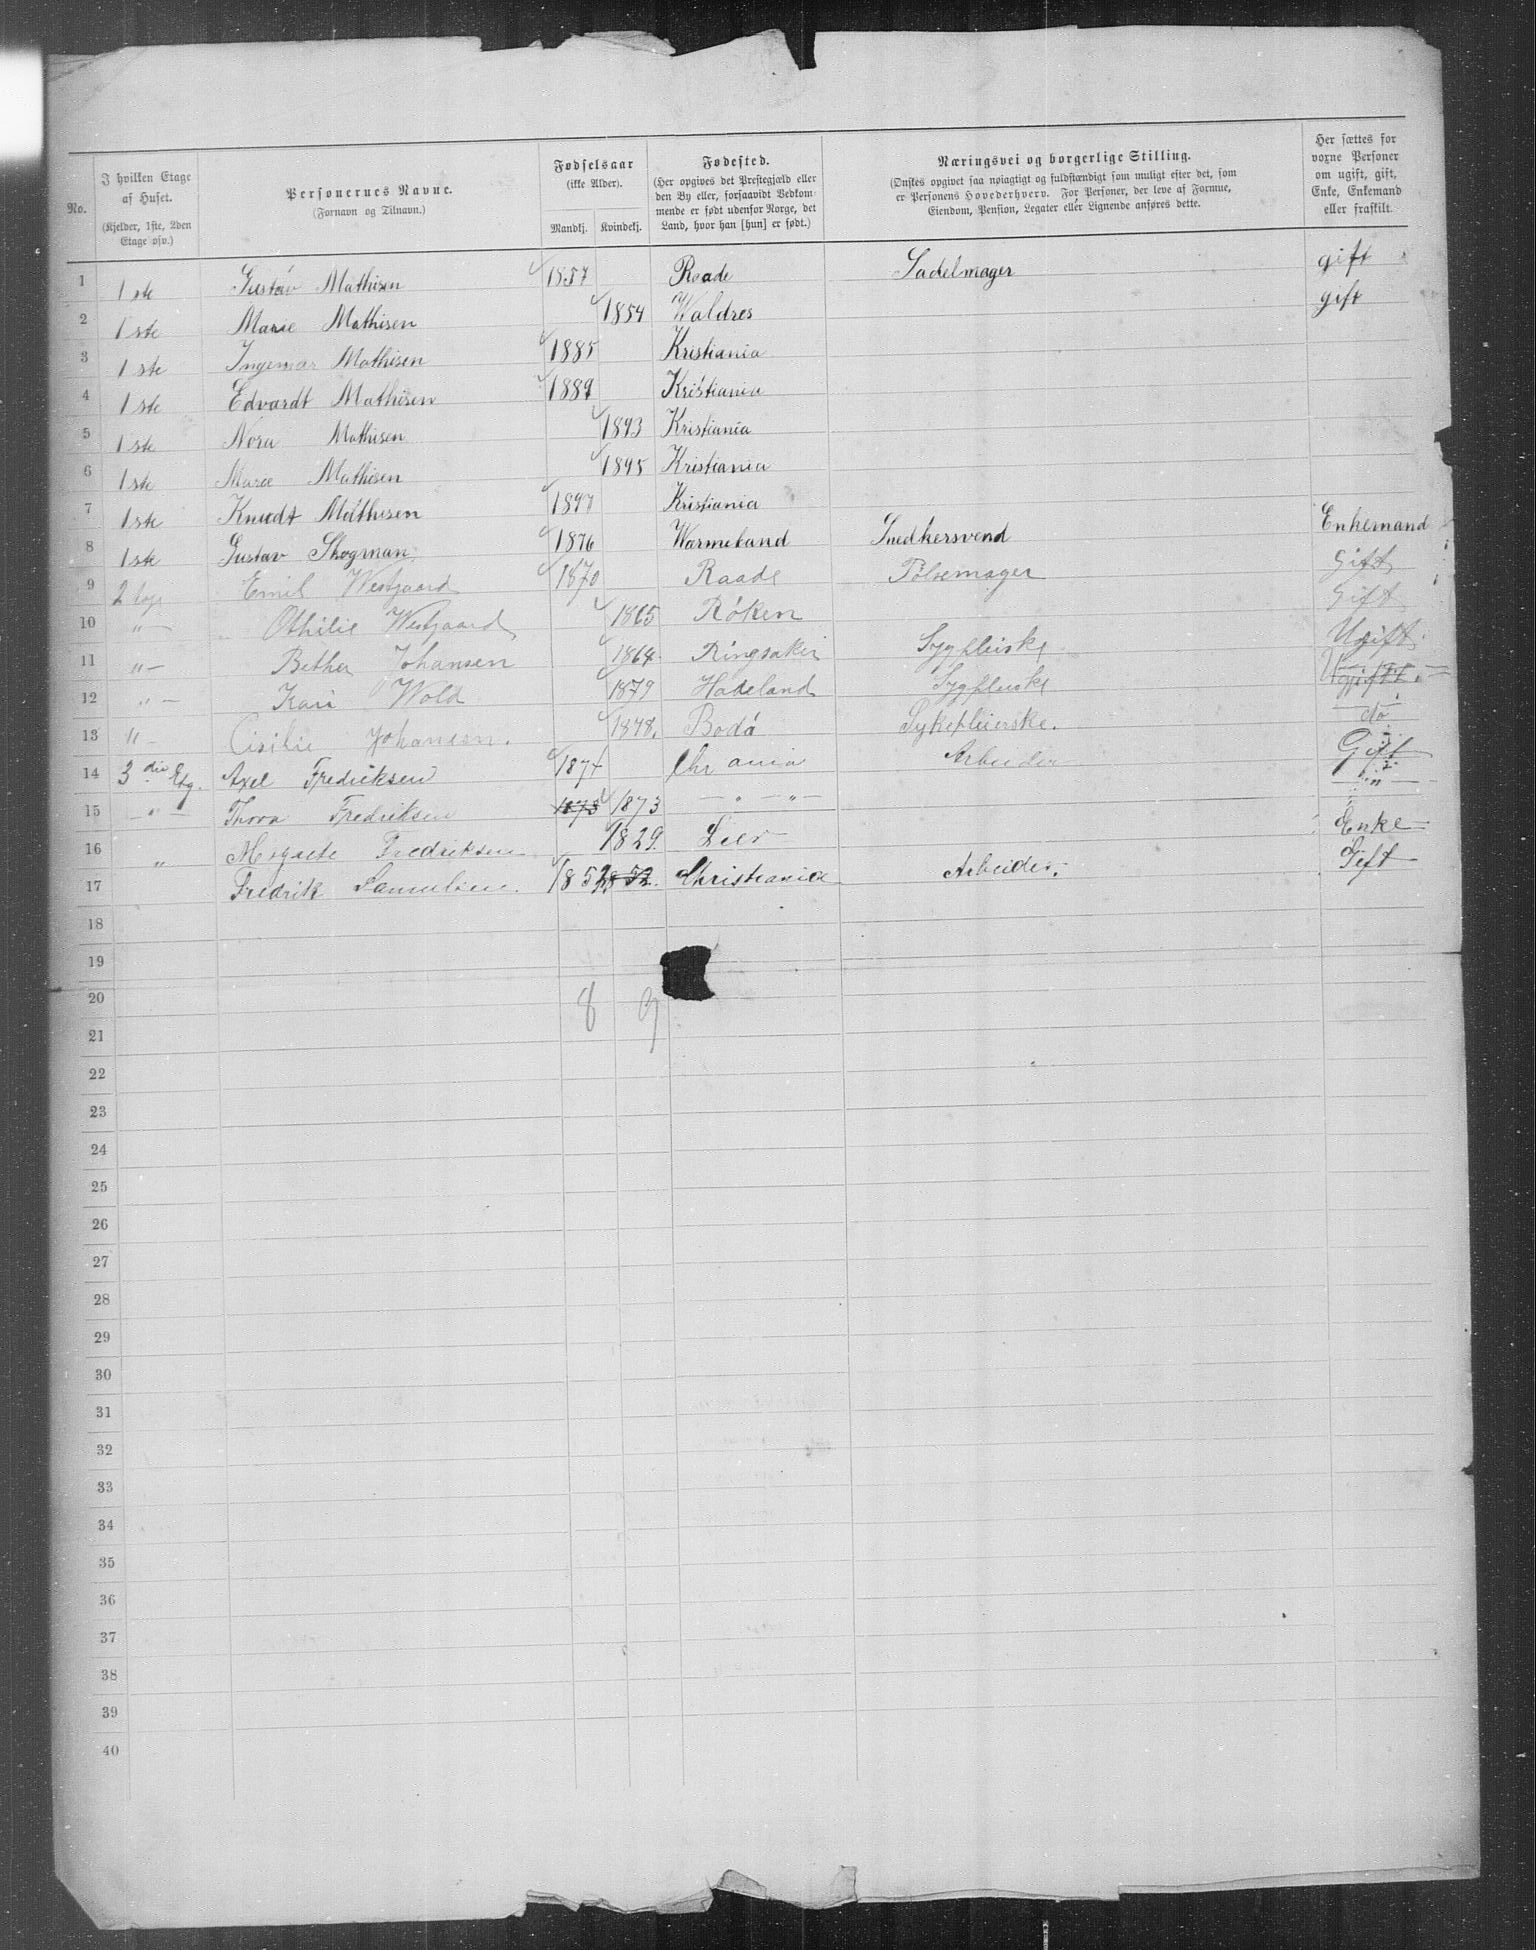 No.
I hvilken Etage af Huset.
(Kjelder, 1ste, 2den Etage osv.)
Personernes Navne.
(Fornavn og Tilnavn.)
Fødselsaar
(ikke Alder).
Mandkj. Kvindekj.
Fødested.
(Her opgives det Prestegjæld eller
den By eller, forsaavidt Vedkom-
mende er født udenfor Norge, det
Land, hvor han [hun] er født.)
Næringsvei og borgerlige Stilling.
(Ønskes opgivet saa nøiagtigt og fuldstændigt som muligt efter det, som
er Personens Hovederhverv. For Personer, der leve af Formue,
Eiendom, Pension, Legater eller Lignende anføres dette.
Her sættes for
voxne Personer
om ugift, gift,
Enke, Enkemand
eller fraskilt.
1 1ste Gustav Mathisen 1857 Raade Sadelmager gift
2 1ste Marie Mathisen 1854 Waldres gift
3 1ste Ingemar Mathisen 1885 Kristiania
4 1ste Edvardt Mathisen 1889 Kristiania
5 1ste Nora Mathisen 1893 Kristiania
6 1ste Marie Mathisen 1895 Kristiania
7 1ste Knudt Mathisen 1897 Kristiania
8 1ste Gustav Skogman 1876 Warmeland Snedkersvend Enkemand
9 2 Emil Westgaard 1870 Raade Pølsemager Gift
10 "— Othilie Westgaard 1865 Røken Gift
11 "— Bethea Johansen 1864 Ringsaker Sygpleiske Ugift
12 "— Kari Wold 1879 Hadeland Sygpleiske Ugift
13 "— Cisilie Johansen. 1878. Bodø Sykepleierske. do
14 3die Etg. Axel Fredriksen 1874 Chr ania Arbeider Gift
15 —"— Thora Fredriksen 1873 1873 —"—"— "
16 " Margaete Fredriksen 1829 Lier Enke
17 Fredrik Samuelsen. 1852 1852. Christiania Arbeider. Gift
18
19
20
8 9
21
22
23
24
25
26
27
28
29
30
31
32
33
34
35
36
37
38
39
40